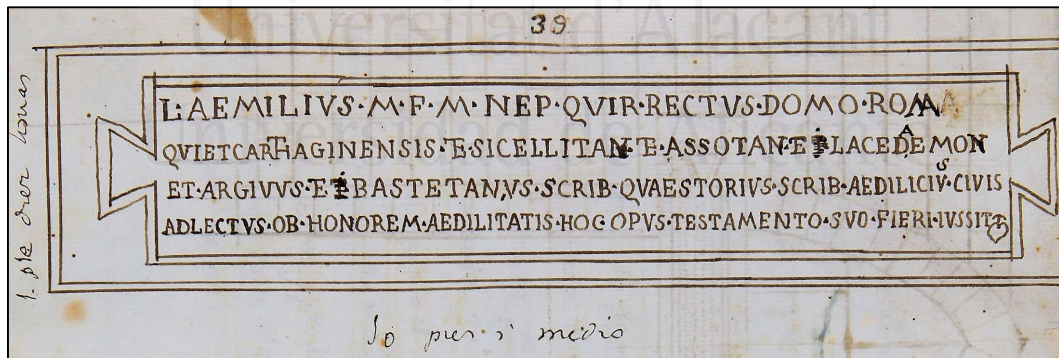 Universitat d'Alacant
Universidad de Alicante
39
L·AEMILIVS·M·F·M·NEP·QVIR·RECTVS·DOMO·ROMA
QVIETCARTHAGINENSIS·E·SICELLITAN·E·ASSOTAN·E·LACEDAEMON
ET·ARGIVVS·E·BASTETANVS·SCRIB·QVAESTORIVS·SCRIB·AEDILICIVS·CIVIS
ADLECTVS·OB·HONOREM·AEDILITATIS·HOC OPVS·TESTAMENTO·SVO·FIERI·IVSSIT
10 pies i medio